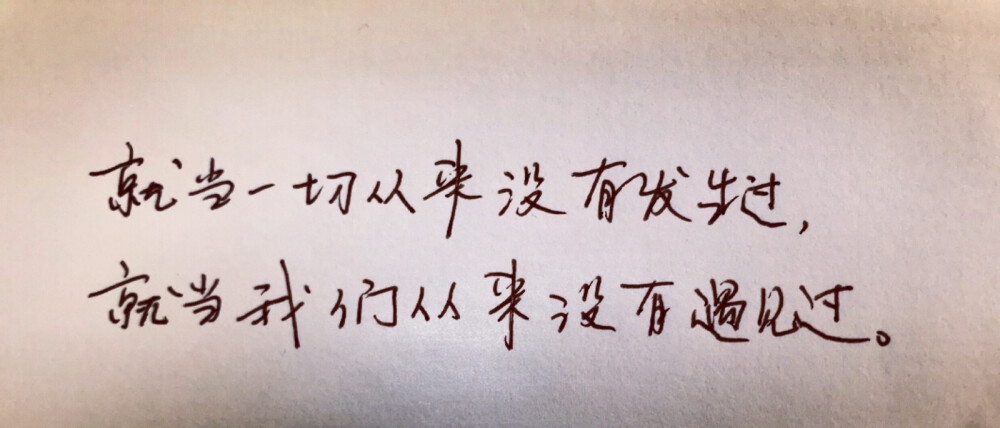 就当一切从来没有发生过，
就当我们从来没有遇见过。